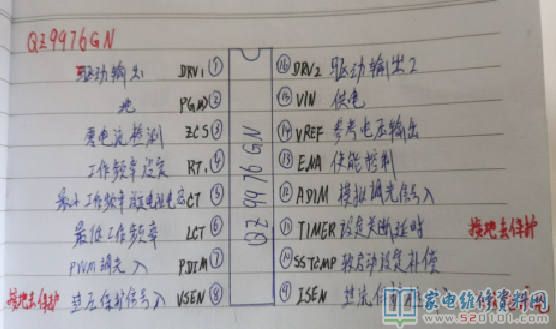 QZ9976GN
驱动输出 DRV1 ① ⑯ DRV2 驱动输出2
地 PGND ② ⑮ VIN 供电
零电流检测 ZCS ③ ⑭ VREF 参考电压输出
工作频率设定 RT ④ ⑬ ENA 使能控制
最小工作频率 CT ⑤ ⑫ ADIM 模拟调光信号入
最低工作频率 LCT ⑥ TIMER 设定关断延时 接地去保护
PWM调光入 PDIM ⑦ SSTCMP 软启动设定补偿
接地去保护 过压保护信号入 VSEN ⑧ ⑨ ISEN
QZ9976GN
家电维修资料网
www.520101.com